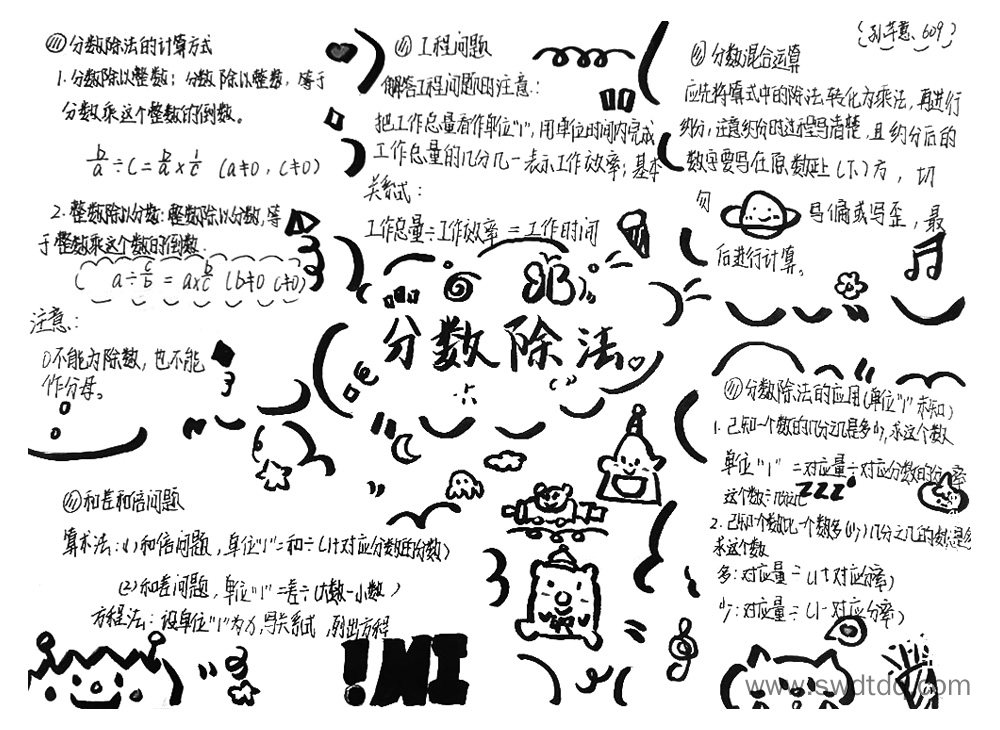 孙芊慧、609
分数除法的计算方式
1.分数除以整数:分数除以整数,等于
分数乘这个整数的倒数。
b/a÷c=b/a×1/c (a≠0,c≠0)
2.整数除以分数:整数除以分数,等
于整数乘这个数的倒数.
(a÷c/b=a×b/c (b≠0 c≠0)
注意:
0不能为除数,也不能
作分母。
工程问题
解答工程问题时的注意:
把工作总量看作单位"1",用单位时间内完成
工作总量的几分几一表示工作效率;基本
关系式:
工作总量÷工作效率=工作时间
分数混合运算
应先将算式中的除法转化为乘法,再进行
约分,注意约分的过程写清楚,且约分后的
数字要写在原数的上(下)方,切
勿写偏或写歪,最
后进行计算。
分数除法
和差和倍问题
算术法:(1)和倍问题,单位"1"=和÷(1+对应分数的分数)
(2)和差问题,单位"1"=差÷(大数-小数)
方程法:设单位"1"为x,写关系式,列出方程
分数除法的应用(单位"1"未知)
1.已知一个数的几分之几是多少,求这个数
单位"1"=对应量÷对应分数的分率
这个数÷几分之几
ZZZ
2.已知一个数比一个数多(少)几分之几的数是多
求这个数
多:对应量÷(1+对应分率)
少:对应量÷(1-对应分率)
www.swdtdq.com